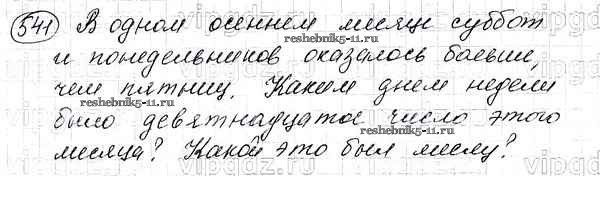 541 В одном осеннем месяце суббот
и понедельников оказалось больше,
reshebnik5-11.ru
чем пятниц. Каким днем недели
reshebnik5-11.ru
было девятнадцатое число этого
месяца? Какой это был месяц?
vipgdz.ru